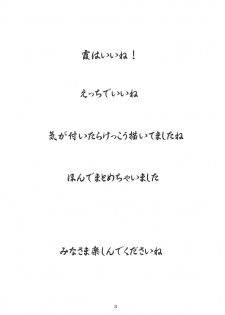 霞はいいね！
えっちでいいね
気が付いたらけっこう描いてましたね
ほんでまとめちゃいました
みなさま楽しんでくださいね